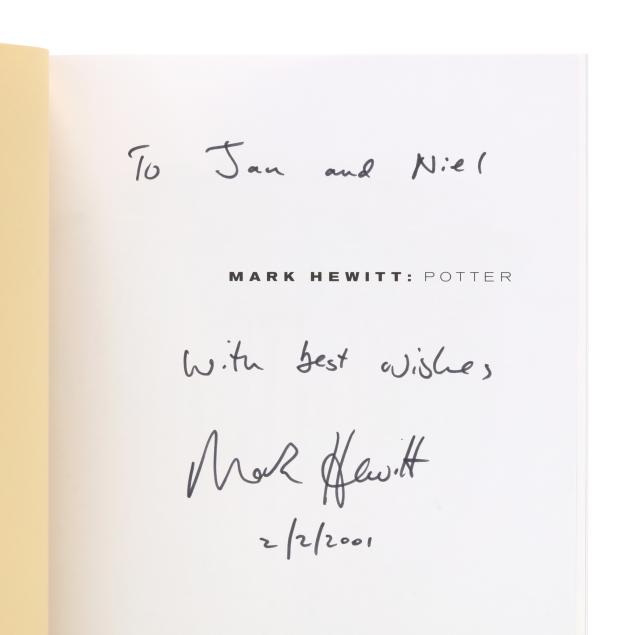 To Jan and Niel
MARK HEWITT: POTTER
With best wishes,
Mark Hewitt
2/2/2001